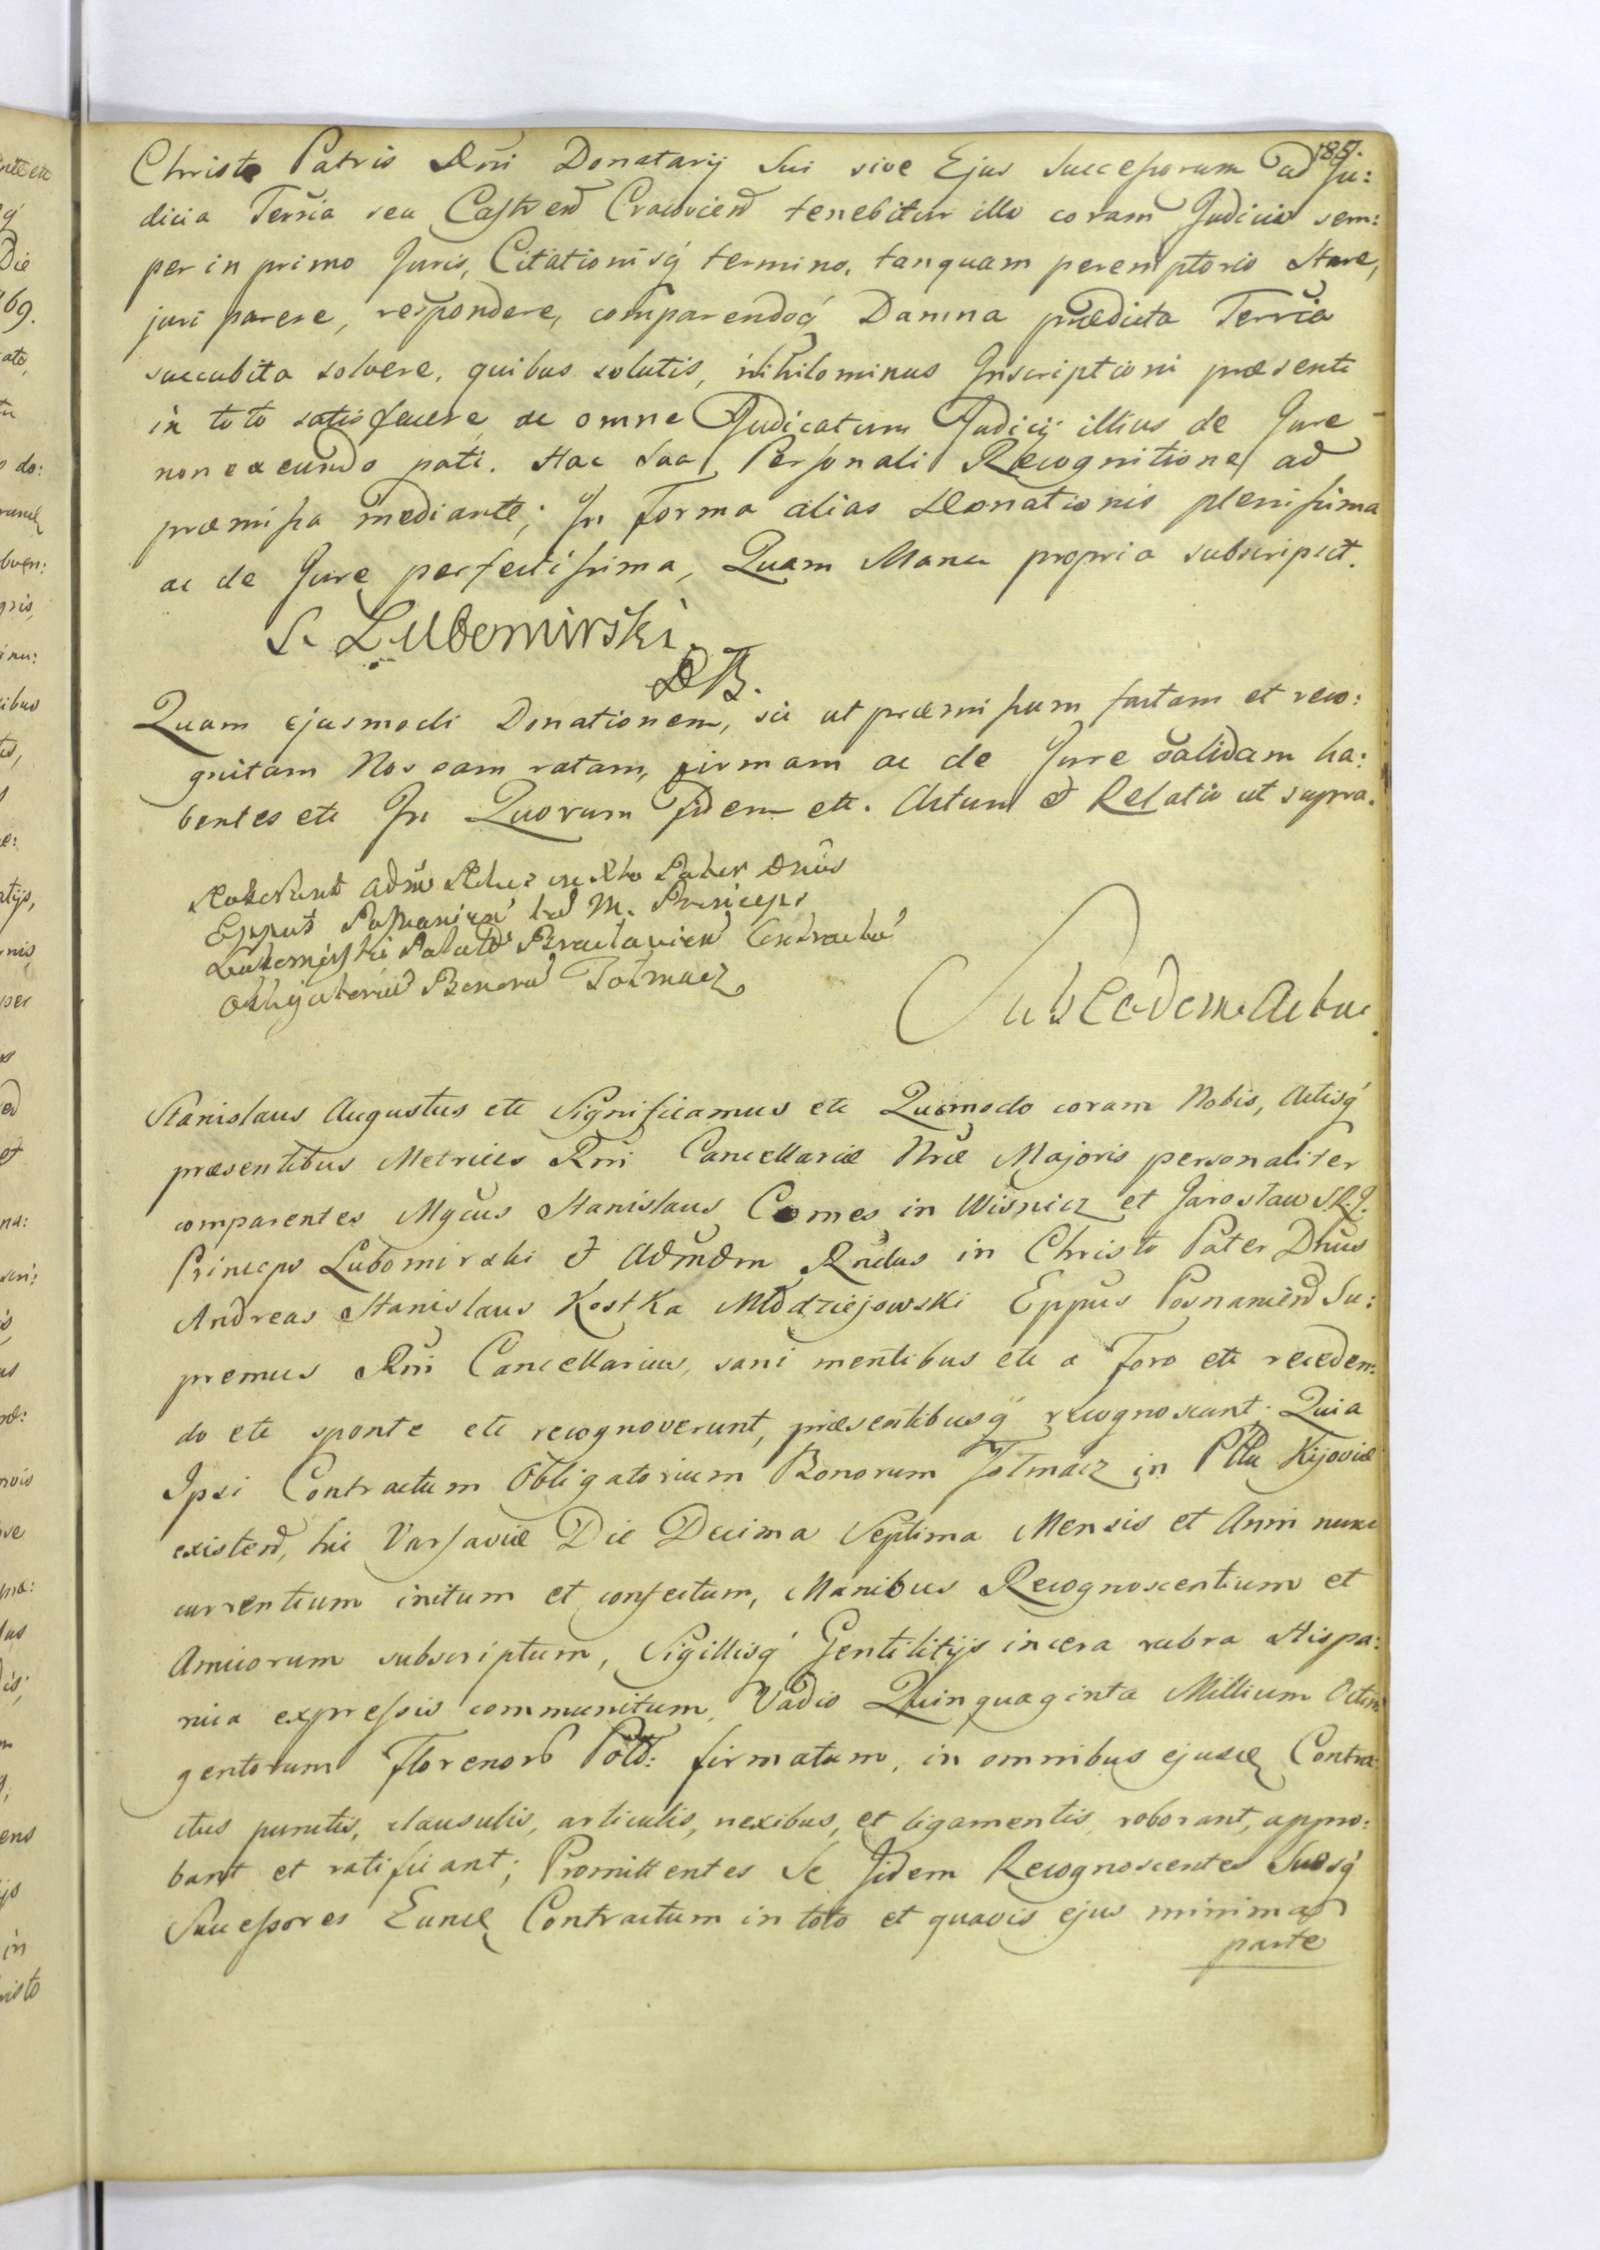 185.
Christo Patris Dni Donatarij Sui sive Ejus Successorum ad Ju:
dicia Terria seu Castren Cracovien tenebitur illo coram Judicio sem:
per in primo Juris, Citationisq́ termino, tanquam peremptorio stare,
juri parere, respondere, comparendoq́ Damna praedicta Terria
succubita solvere, quibus solutis, nihilominus Inscriptioni praesenti
in toto satisfacere ac omne Judicatum Judicij illius de Jure
non exeundo pati. Hac sua Personali Recognitione ad
praemissa mediante; In Forma alias Donationis plenissima
ac de Jure perfectissima, Quam Manu propria subscripsit.
S. Lubomirski.
Quam ejusmodi Donationem, sic ut praemissum factam et reco:
gnitam Nos eam ratam, firmam ac de Jure validam ha:
bentes etc In Quorum Fidem etc. Actum et Relatio ut supra.
Roborant Adm Rdus in Xto Pater Dnus
Eppus Posnanien et M. Princeps
Lubomirski Palatd Braclavien Contractu
Obligatoriu Bonoru Tołmacz
Sub Eodem Actu.
Stanislaus Augustus etc Significamus etc Quomodo coram Nobis, Actisq́
praesentibus Metrices Rni Cancellariae Nrae Majoris personaliter
comparentes Mgcus Stanislaus Comes in Wisnicz et Jarosław S.R.J.
Princeps Lubomirski et Admdm Rndus in Christo Pater Dnus
Andreas Stanislaus Kostka Młodziejowski Eppus Posnanien Su:
premus Rni Cancellarius, sani mentibus etc a Foro etc receden:
do etc sponte etc recognoverunt, praesentibusq́ recognoscunt. Quia
Ipsi Contractum Obligatorium Bonorum Tołmacz in Pttu Kijoviae
existen, hic Varsaviae Die Decima Septima Mensis et Anni nunc
currentium initum et confectum, Manibus Recognoscentium et
Amicorum subscriptum, Sigillisq́ Gentilitijs in cera rubra Hispa:
nica expressis communitum, Vadio Quinquaginta Millium Octin
gentorum Florenorb Pold: firmatum, in omnibus ejusd Contra:
ctus punctis, clausulis, articulis, nexibus, et ligamentis roborant, appro:
bant et ratificant; Promittentes Se Jidem Recognoscentes Suosq́
Successores Eund Contractum in toto et quavis ejus minima
parte